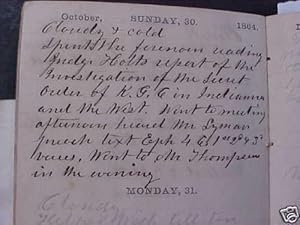 October, SUNDAY, 30. 1864.
Cloudy & cold
Spent the forenoon reading
Judge Holts report of the
Investigation of the Secret
Order of K. G. C in Indianna
and the West. Went to meeting
afternoon heard Mr Lyman
preach text Eph 4 Ch 1st 2d & 3d
verses, Went to Mr Thompson
in the evening
MONDAY, 31.
Cloudy